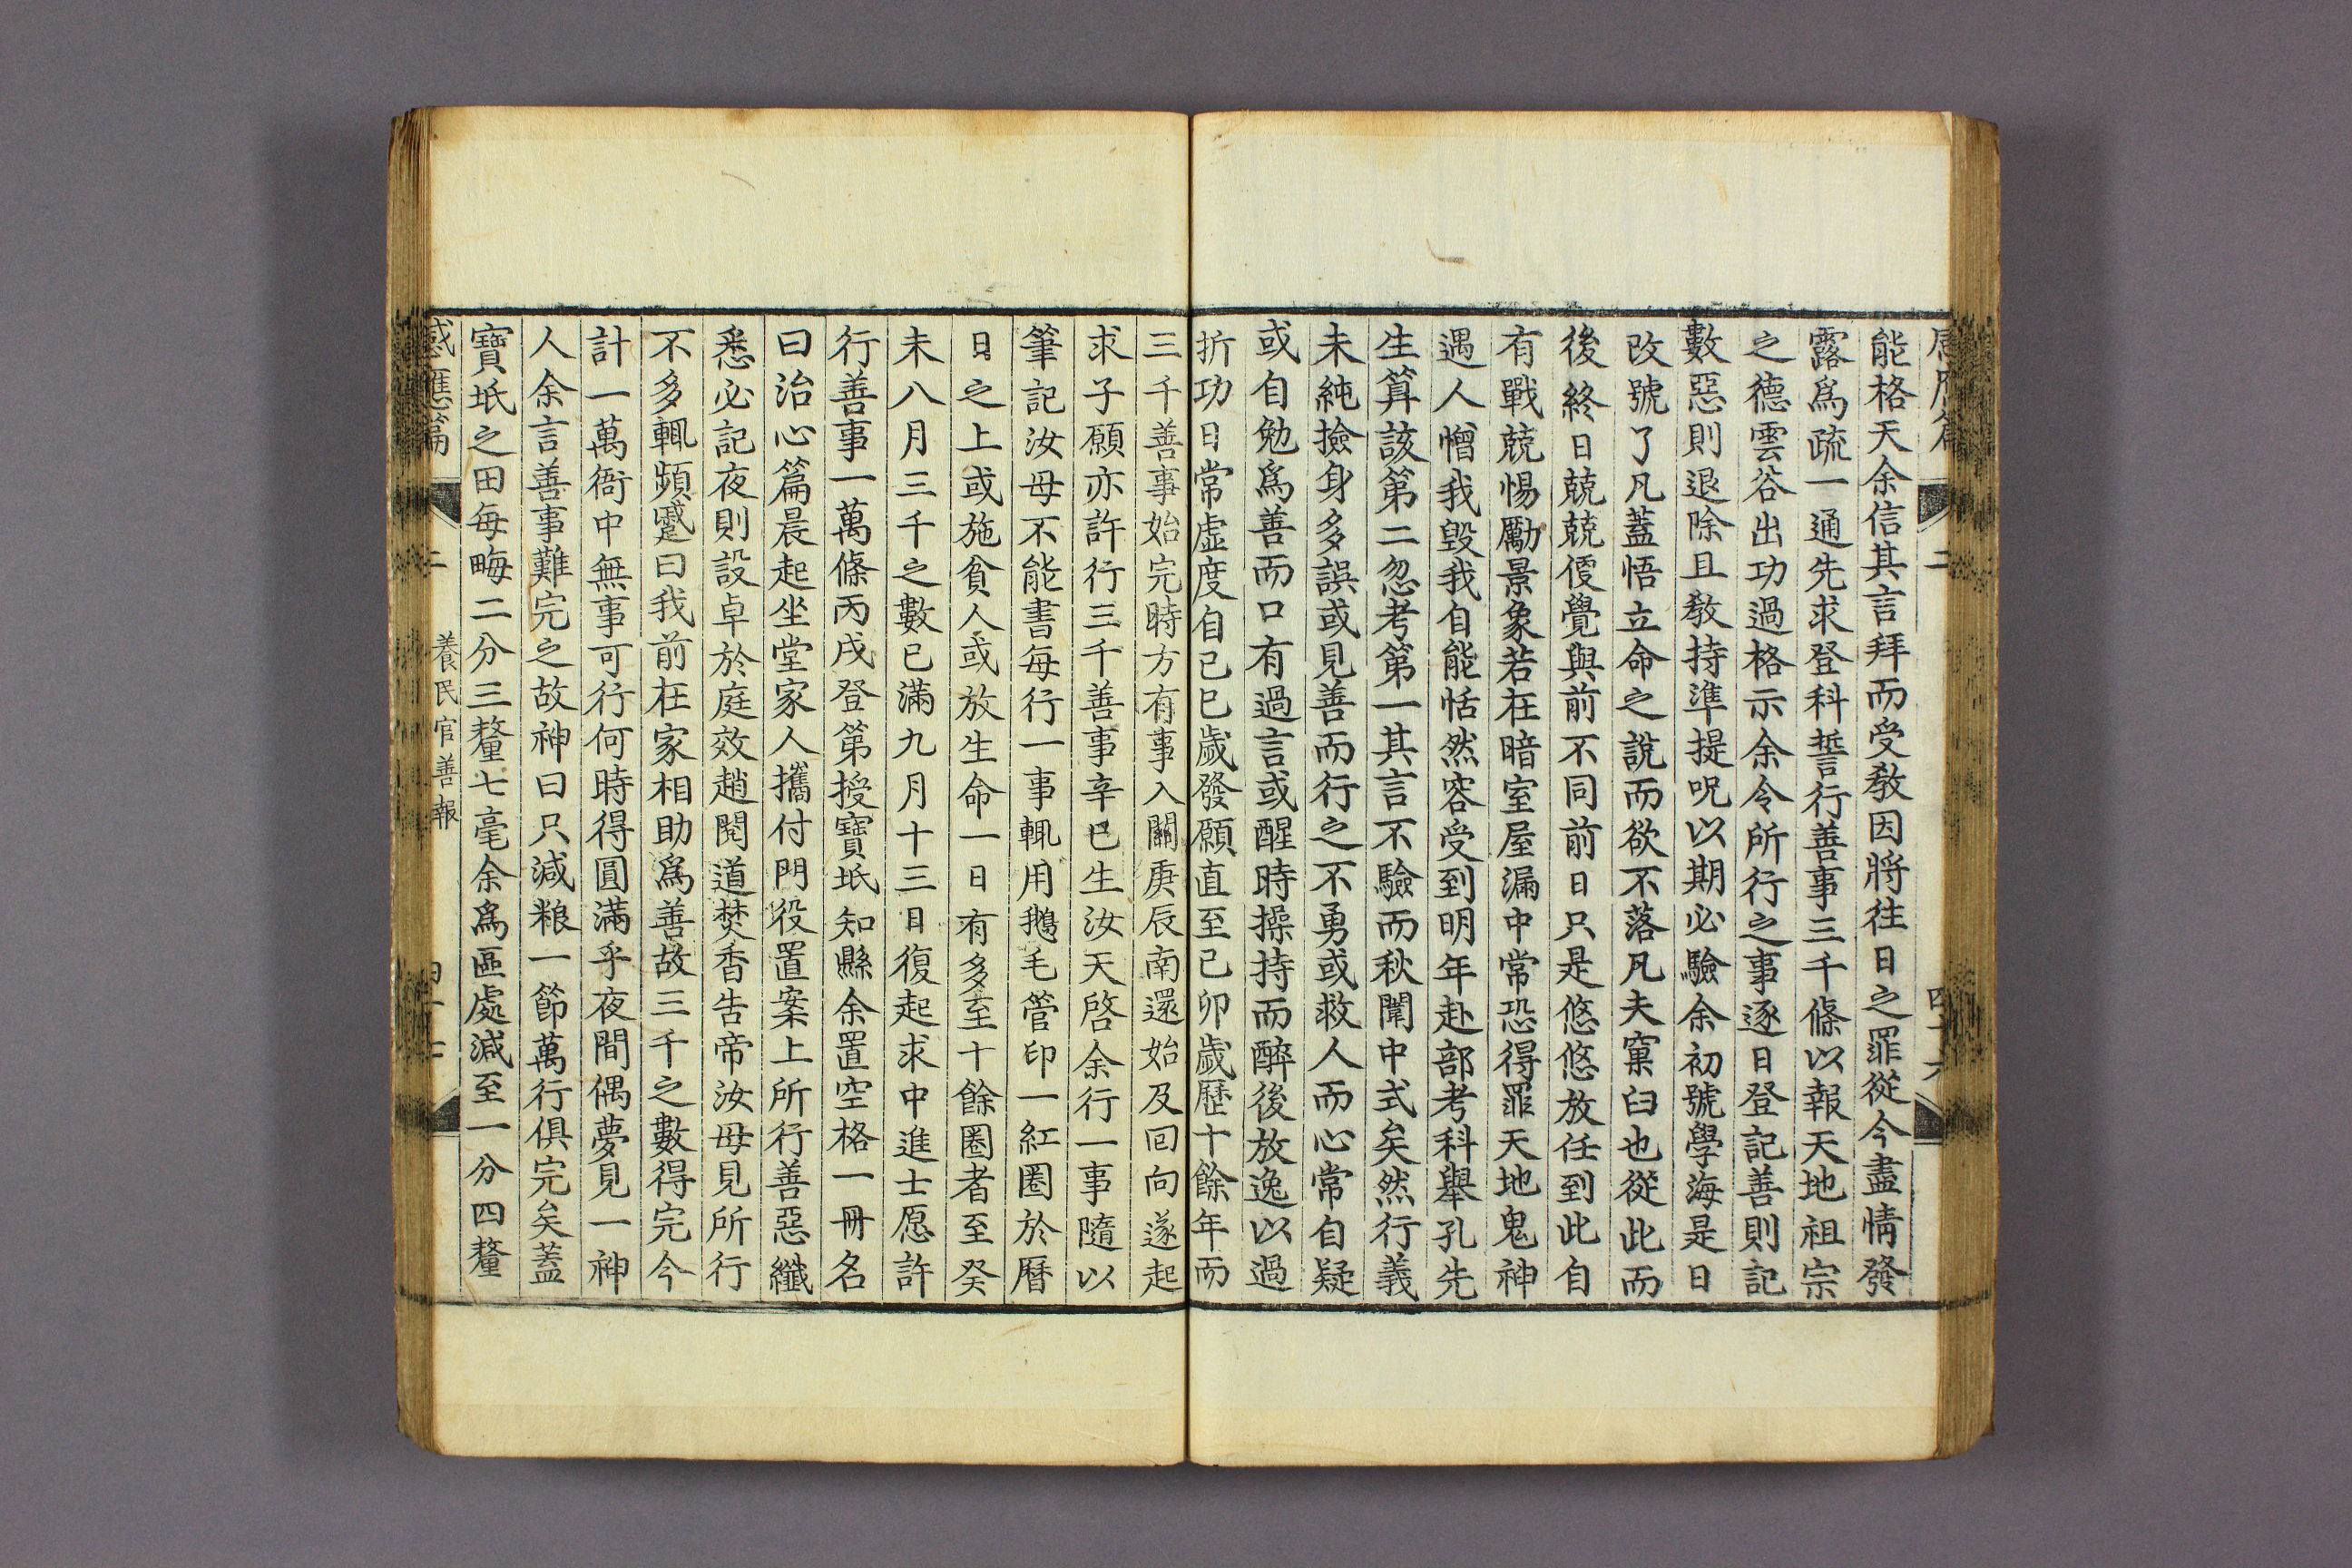 感應篇 二 四十六
能格天余信其言拜而受敎因將往日之罪從今盡情發
露爲疏一通先求登科誓行善事三千條以報天地祖宗
之德雲谷出功過格示余令所行之事逐日登記善則記
數惡則退除且敎持準提呪以期必驗余初號學海是日
改號了凡蓋悟立命之說而欲不落凡夫窠臼也從此而
後終日兢兢便覺與前不同前日只是悠悠放任到此自
有戰兢惕勵景象若在暗室屋漏中常恐得罪天地鬼神
遇人憎我毀我自能恬然容受到明年赴部考科舉孔先
生算該第二忽考第一其言不驗而秋闈中式矣然行義
未純撿身多誤或見善而行之不勇或救人而心常自疑
或自勉爲善而口有過言或醒時操持而醉後放逸以過
折功日常虛度自己巳歲發願直至己卯歲歷十餘年而
三千善事始完時方有事入關庚辰南還始及回向遂起
求子願亦許行三千善事辛巳生汝天啓余行一事隨以
筆記汝母不能書每行一事輒用鵝毛管印一紅圈於曆
日之上或施貧人或放生命一日有多至十餘圈者至癸
未八月三千之數已滿九月十三日復起求中進士愿許
行善事一萬條丙戌登第授寶坻知縣余置空格一冊名
曰治心篇晨起坐堂家人攜付門役置案上所行善惡纖
悉必記夜則設卓於庭效趙閱道焚香告帝汝母見所行
不多輒頻蹙曰我前在家相助爲善故三千之數得完今
計一萬衙中無事可行何時得圓滿乎夜間偶夢見一神
人余言善事難完之故神曰只減粮一節萬行俱完矣蓋
寶坻之田每畮二分三釐七毫余爲區處減至一分四釐
感應篇 二 養民官善報 四十七